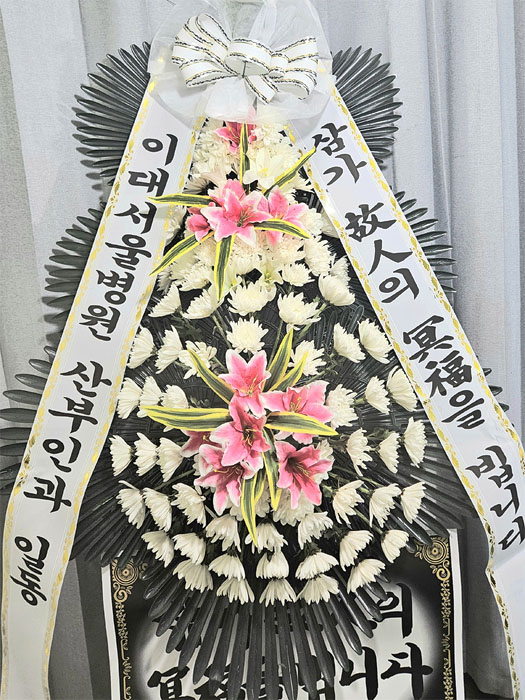 삼가 故人의 冥福을 빕니다
이대서울병원 산부인과 일동
의
冥 니다